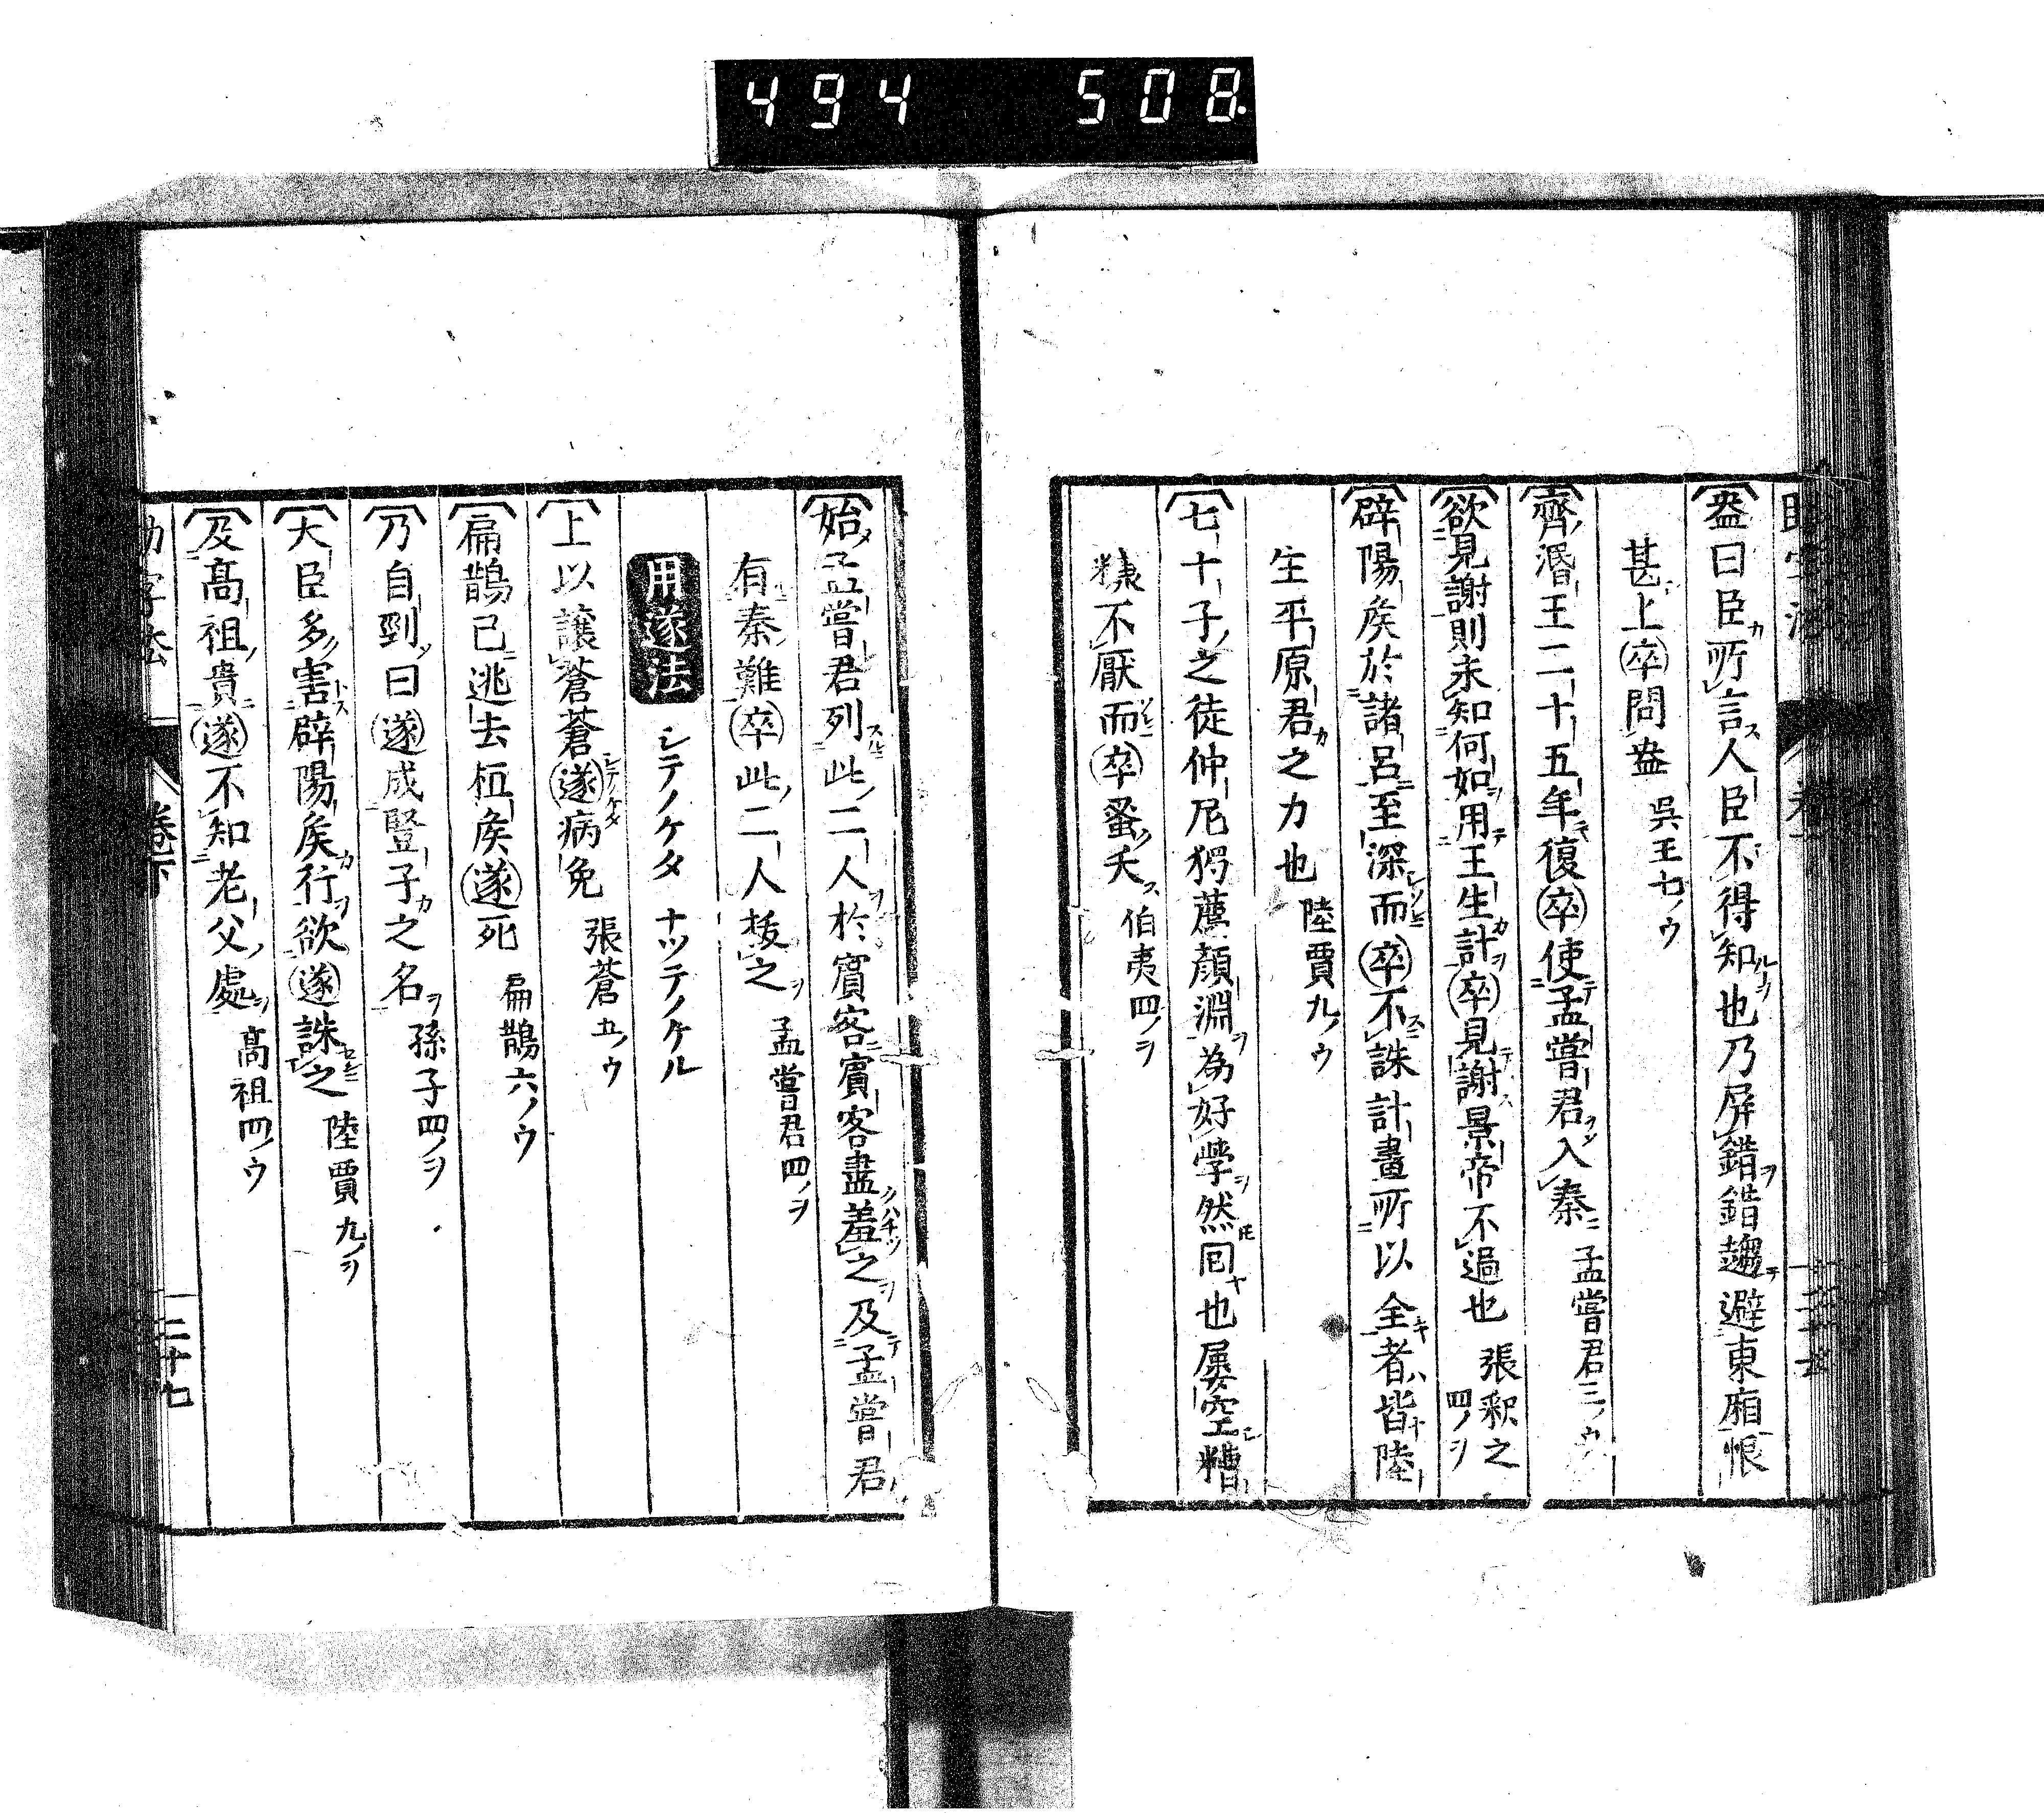 494 508
盎曰臣所言人臣不得知也乃屏錯錯趨避東廂恨
甚上卒問盎 吳王七ノウ
齊湣王二十五年復卒使孟嘗君入秦 孟嘗君三ノウ
欲見謝則未知何如用王生計卒見謝景帝不過也 張釈之四ノヲ
辟陽矦於諸呂至深而卒不誅計畫所以全者皆陸
生平原君之力也 陸賈九ノウ
七十子之徒仲尼獨薦顏淵為好學然回也屢空糟
糠不厭而卒蚤夭 伯夷四ノヲ
始孟嘗君列此二人於賓客賓客盡羞之及孟嘗君
有秦難卒此二人拔之 孟嘗君四ノヲ
用遂法 シテノケタ ナツテノケル
上以讓蒼蒼遂病免 張蒼五ノウ
扁鵲已逃去桓矦遂死 扁鵲六ノウ
乃自剄曰遂成豎子之名 孫子四ノヲ
大臣多害辟陽矦行欲遂誅之 陸賈九ノヲ
及髙祖貴遂不知老父處 髙祖四ノウ
助字法 卷下 二十七